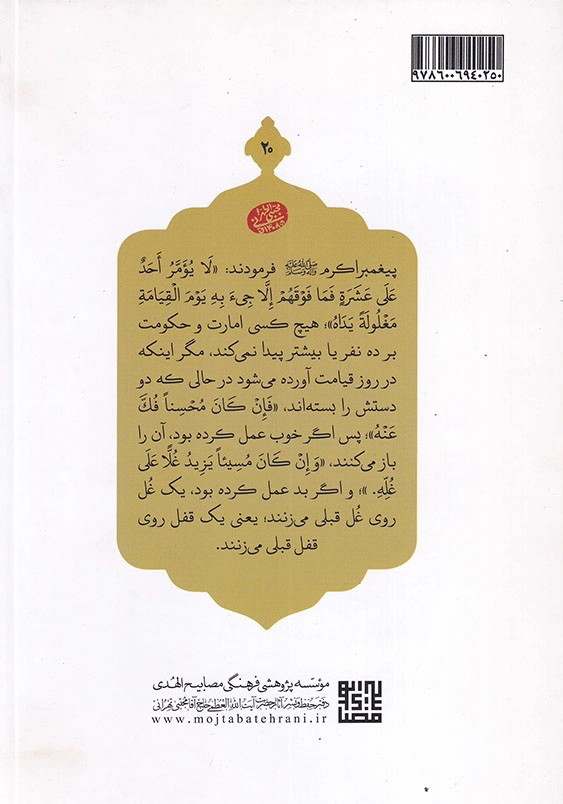 ۹۷۸۶۰۰۶۹۴۰۲۵۰
۲۰
پیغمبر اکرم ﷺ فرمودند: «لَا يُؤَمَّرُ أَحَدٌ
عَلَى عَشَرَةٍ فَمَا فَوْقَهُمْ إِلَّا جِيءَ بِهِ يَوْمَ الْقِيَامَةِ
مَغْلُولَةً يَدَاهُ»؛ هیچ کسی امارت و حکومت
بر ده نفر یا بیشتر پیدا نمی‌کند، مگر اینکه
در روز قیامت آورده می‌شود در حالی که دو
دستش را بسته‌اند، «فَإِنْ كَانَ مُحْسِناً فُكَّ
عَنْهُ»؛ پس اگر خوب عمل کرده بود، آن را
باز می‌کنند، «وَإِنْ كَانَ مُسِيئاً يَزِيدُ غُلًّا عَلَى
غُلِّهِ. »؛ و اگر بد عمل کرده بود، یک غُل
روی غُل قبلی می‌زنند؛ یعنی یک قفل روی
قفل قبلی می‌زنند.
مؤسّسه پژوهشی فرهنگی مصابیح الهُدی
دفتر حفظ و نشر آثار حضرت آیت الله العظمی حاج آقا مجتبی تهرانی
www.mojtabatehrani.ir